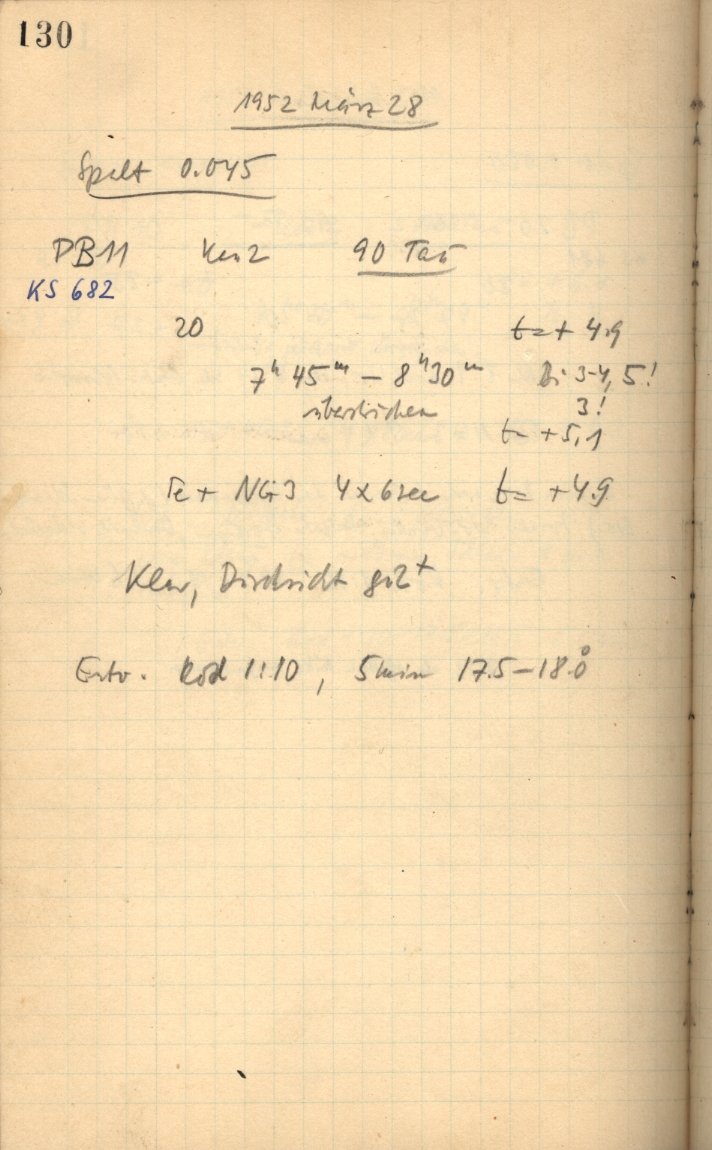 130
1952 März 28
Spalt 0.045
PB11 Ka2 90 Tau
KS 682
20 t=+4.9
7h 45m – 8h 30m Bi 3-4, 5!
überstrichen 3!
t= +5,1
Fe + NG3 4x6sec t= +4.9
Klar, Durchsicht gz2+
Entw. Rod 1:10, 5min 17.5–18.0°